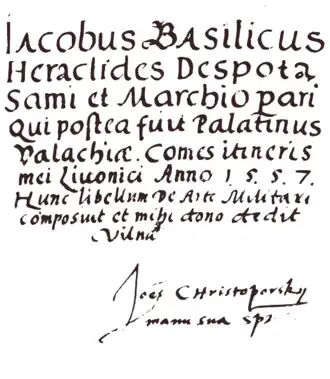 Iacobus Basilicus
Heraclides Despota
Sami et Marchio pari
qui postea fuit Palatinus
Valachiæ. Comes itineris
mei Liuonici Anno 1557.
Hunc libellum De Arte Militari
composuit et mihi dono dedit
Vilnæ
Joēs Christoporsky
manu sua